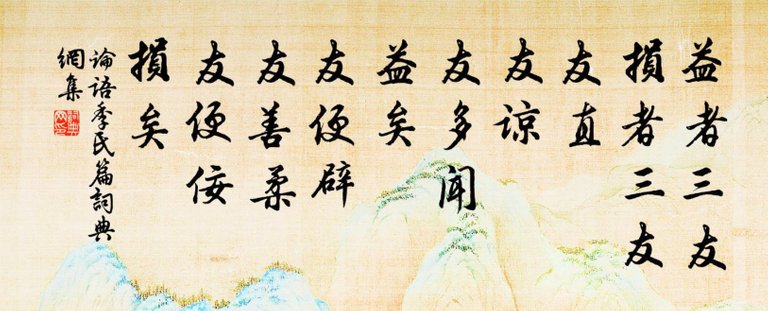 益者三友
損者三友
友直
友諒
友多聞
益矣
友便辟
友善柔
友便佞
損矣
論語季氏篇詞典
網集